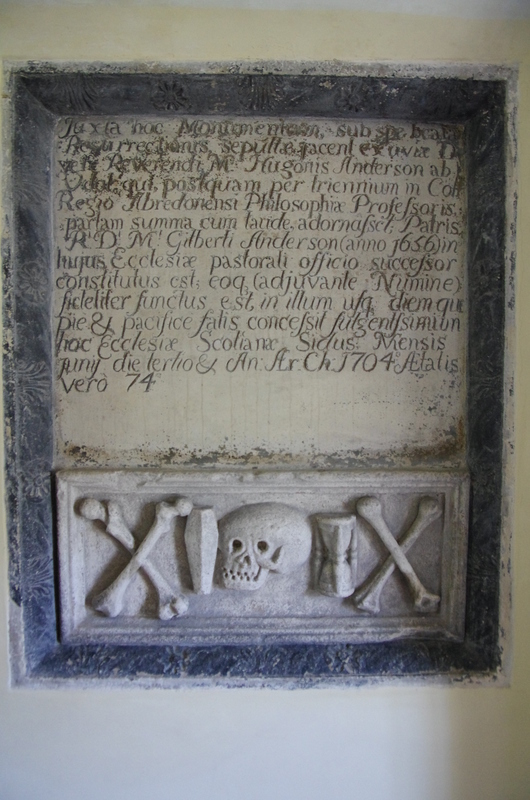 Juxta hoc Monumentum, sub spe beatæ
Resurrectionis, sepultæ jacent exuviæ
Reverendi Mri Hugonis Anderson ab
Udol; qui, postquam per triennium in Coll:
Regio Abredonensi Philosophiæ Professoris,
partam summa cum laude, adornasset, Patris,
R. D. Mri Gilberti Anderson (anno 1656) in
hujus Ecclesiæ pastorali officio successor
constitutus est; eoq (adjuvante Numine)
fideliter functus est, in illum usq diem qui
pie & pacifice fatis concessit fulgentissimum
hoc Ecclesiæ Scotianæ Sidus; Mensis
Junij die tertio & An: Ær: Ch: 1704 Ætatis
vero 74